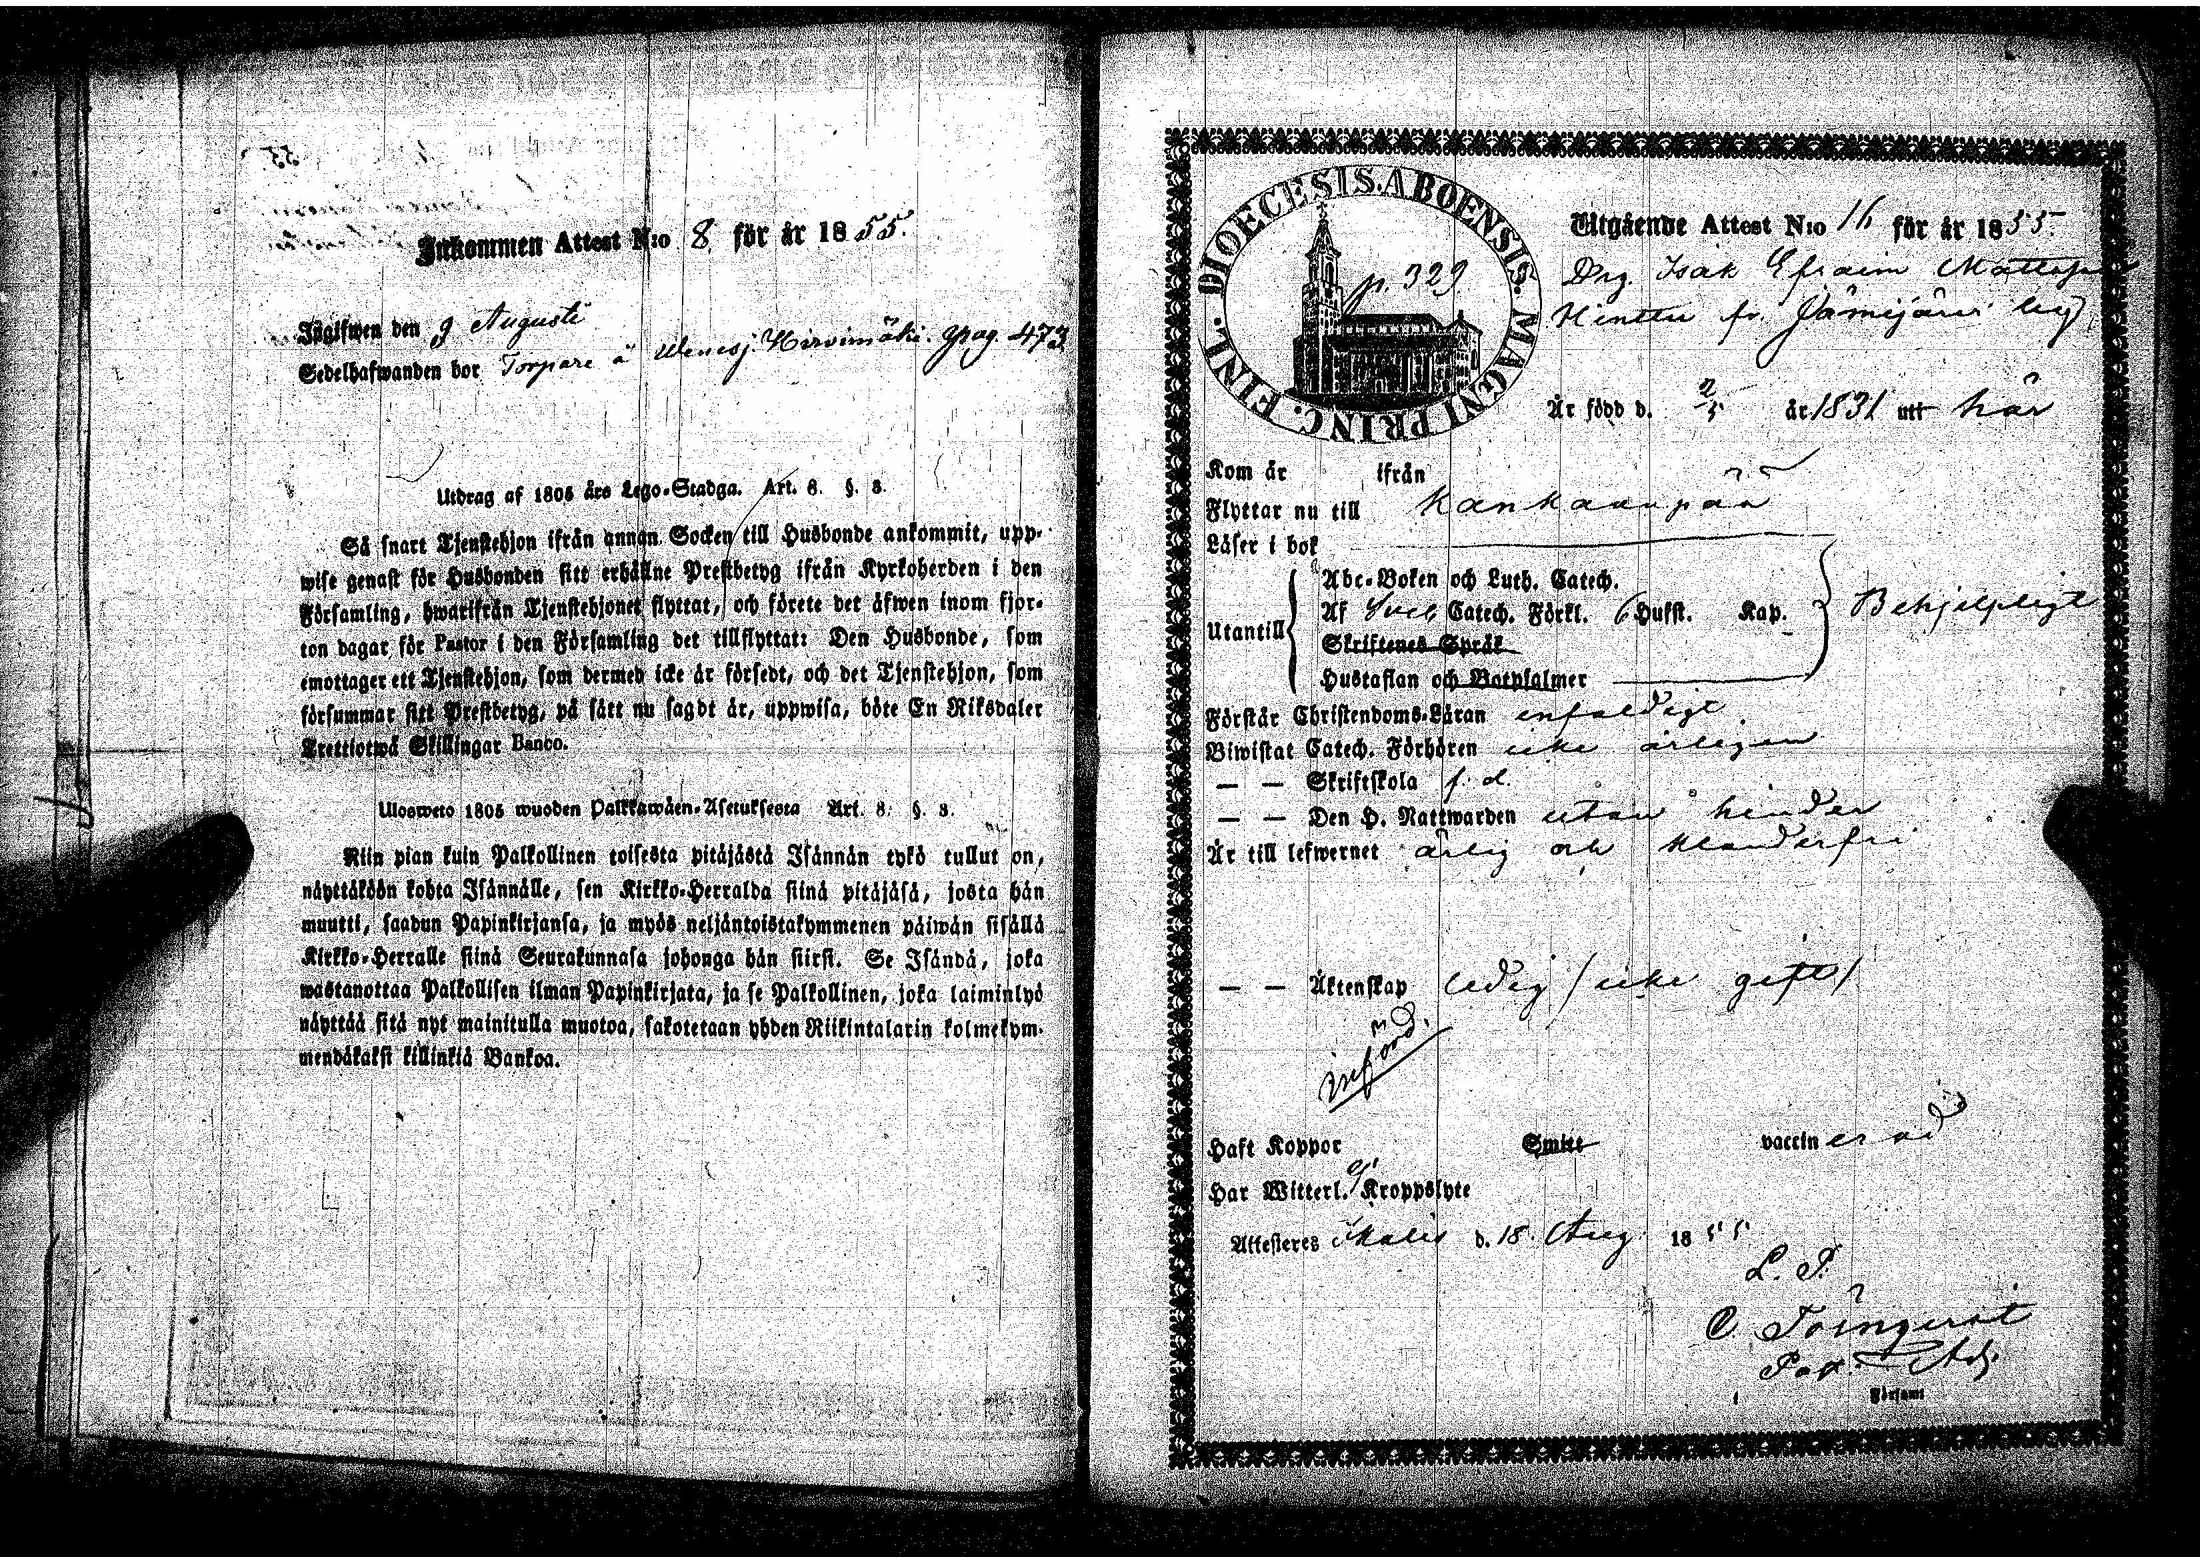 Inkommen Attest N:o 8 för år 1855.
Isgifwen den 9 Augusti
Sedelhafwanden bor Torpare å Wenesj. Hirvimäki. pag. 473
Utdrag af 1805 års Lego-Stadga. Art. 8. §. 3.
Så snart Tjenstehjon ifrån annan Socken till Husbonde ankommit, upp-
wise genast för Husbonden sitt erhållne Prestbetyg ifrån Kyrkoherden i den
Församling, hwarifrån Tjenstehjonet flyttat, och förete det äfwen inom fjor-
ton dagar för Pastor i den Församling det tillflyttat: Den Husbonde, som
emottager ett Tjenstehjon, som dermed icke är försedt, och det Tjenstehjon, som
försummar sitt Prestbetyg, på sätt nu sagdt är, uppwisa, böte En Riksdaler
Trettiotwå Skillingar Banco.
Ulosweto 1805 wuoden Palkkawäen-Asetuksesta Art. 8. §. 3.
Niin pian kuin Palkollinen toisesta pitäjästä Isännän tykö tullut on,
näyttäköön kohta Isännälle, sen Kirkko-Herralda siinä pitäjäsä, josta hän
muutti, saadun Papinkirjansa, ja myös neljäntoistakymmenen päiwän sisällä
Kirkko-Herralle siinä Seurakunnasa johonga hän siirsi. Se Isändä, joka
wastanottaa Palkollisen ilman Papinkirjata, ja se Palkollinen, joka laiminlyö
näyttää sitä nyt mainitulla muotoa, sakotetaan yhden Riikintalarin kolmekym-
mendäkaksi killinkiä Bankoa.
DIOECESIS. ABOENSIS. MAGNI PRINC. FINL.
p. 329
Utgående Attest N:o 16 för år 1855.
Drg. Isak Efraim Mattsson
Hinttu fr. Jämijärvi
Är född d. 2/5 år 1831 utt här
Kom år ifrån
Flyttar nu till Kankaanpää
Läser i bok
Abc-Boken och Luth. Catech.
Utantill Af Sveb Catech. Förkl. 6 Hufst. Kap. Behjelpligt
Skriftenes Språk
Hustaflan och Botpsalmer
Förstår Christendoms-Läran enfaldigt
Biwistat Catech. Förhören icke årligen
— — Skriftskola f. d.
— — Den H. Nattwarden utan hinder
Är till lefwernet ärlig och klanderfri
— — Äktenskap ledig /icke gift/
införd.
Haft Koppor Smitt vaccinerad
Har Witterl. ej Kroppslyte
Attesteres Ikalis d. 18. Aug 1855
L. P.
Församl